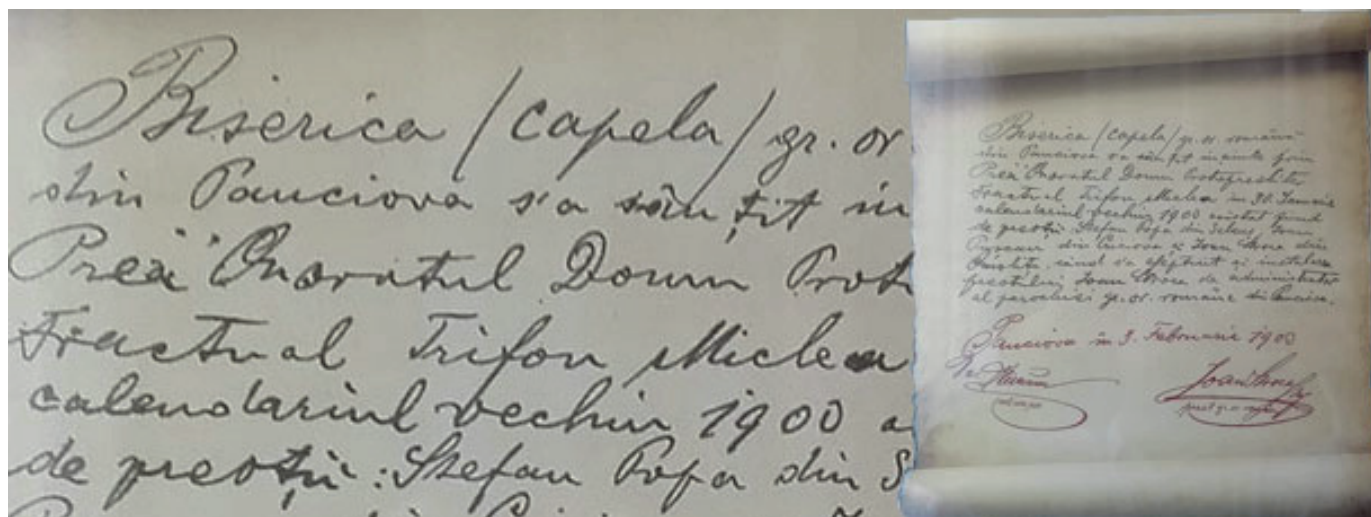 Biserica (capela) gr. or
din Panciova s'a sânțit in
Prea Onoratul Domn Prot
tractual Trifon Miclea
calendariul vechiu 1900 a
de preoții: Stefan Popa din S
Biserica (capela) gr. or. română
din Panciova s'a sânțit inainte prin
Prea Onoratul Domn Protopresbiter
tractual Trifon Miclea in 30. Ianuarie
calendariul vechiu 1900 asistat fiind
de preoții: Stefan Popa din Seleus, Ioan
din Ioan din
când s'a și instalarea
preotului Ioan de administrator
al parochiei gr. or. române din
Panciova in 3. Februarie 1900
Ioan